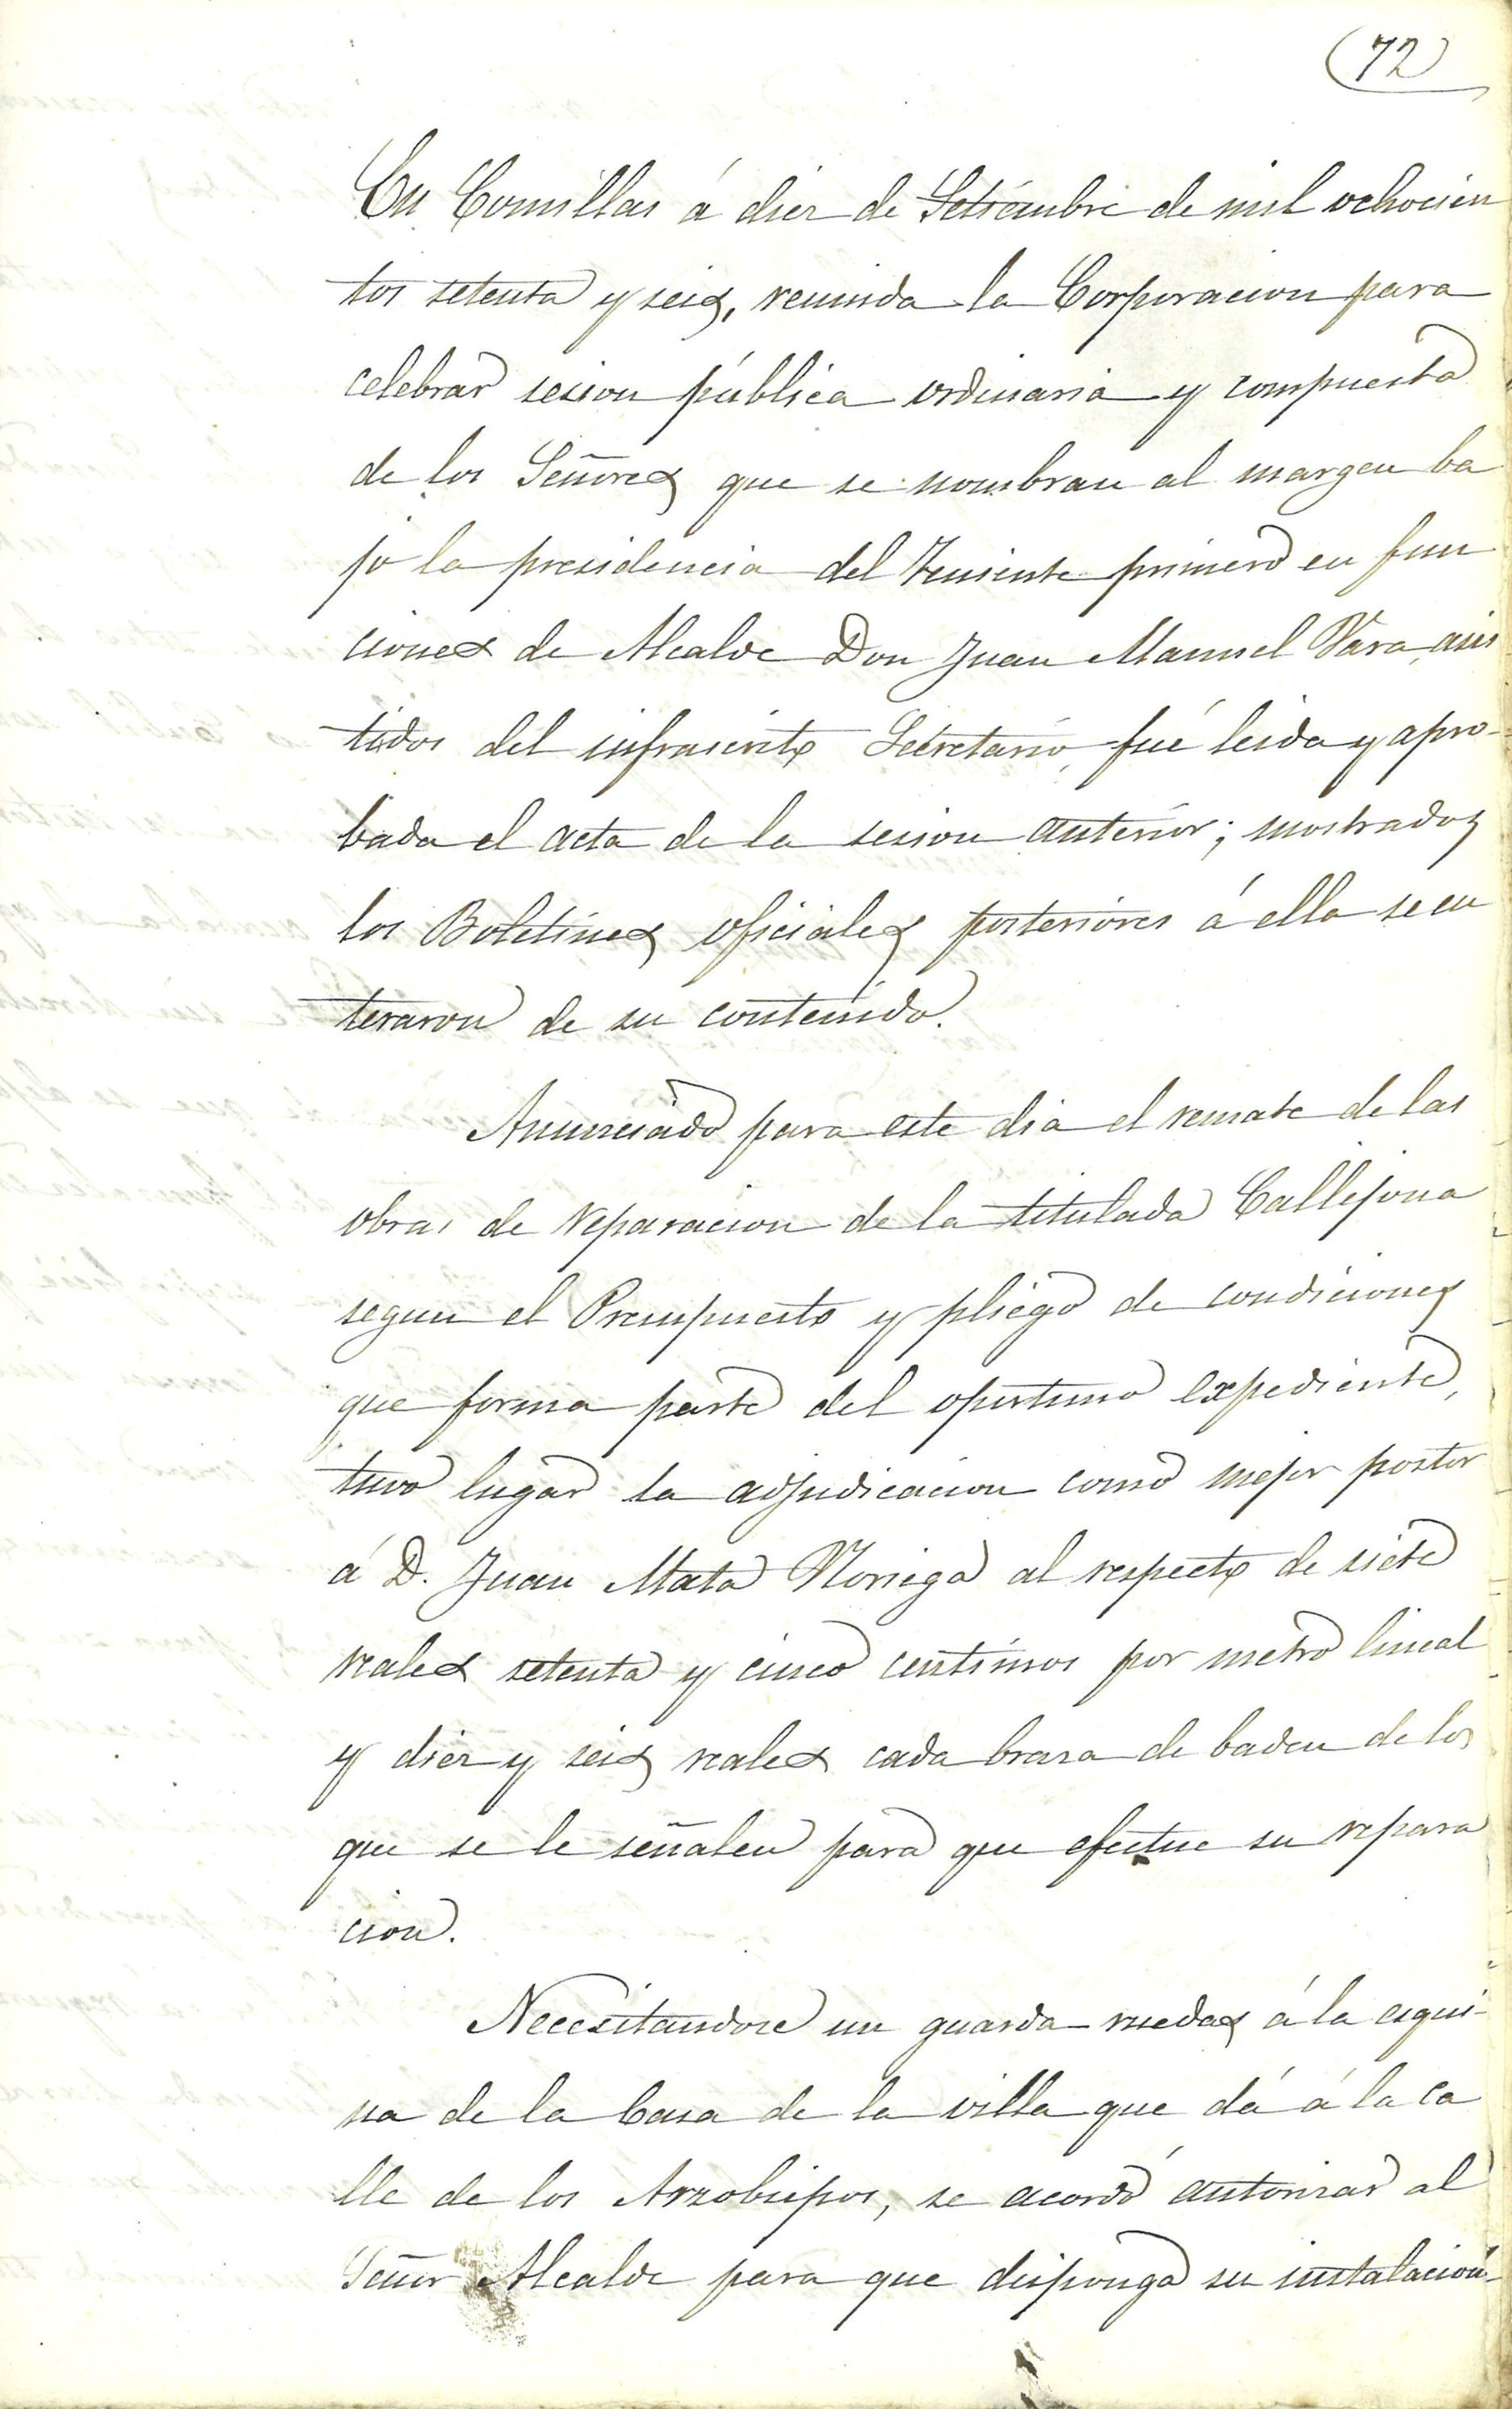 (72)
En Comillas á diez de Setiembre de mil ochocien
tos setenta y seis, reunida la Corporacion para
celebrar sesion pública ordinaria y compuesta
de los Señores que se nombran al margen ba
jo la presidencia del Teniente primero en fun
ciones de Alcalde Don Juan Manuel Vara, asis
tidos del infrascrito Secretario, fué leida y apro-
bada el acta de la sesion anterior; mostrados
los Boletines oficiales posteriores á ella se en
teraron de su contenido.
Anunciado para este dia el remate de las
obras de reparacion de la titulada Callejona
segun el Presupuesto y pliego de condiciones
que forma parte del oportuno expediente,
tuvo lugar la adjudicacion como mejor postor
á D. Juan Mata Noriega al respecto de siete
reales setenta y cinco centimos por metro lineal
y diez y seis reales cada braza de baden de los
que se le señalen para que efectue su repara
cion.
Necesitandose un guarda-ruedas á la esqui-
na de la Casa de la villa que dá á la ca
lle de los Arzobispos, se acordó autorizar al
Señor Alcalde para que disponga su instalacion